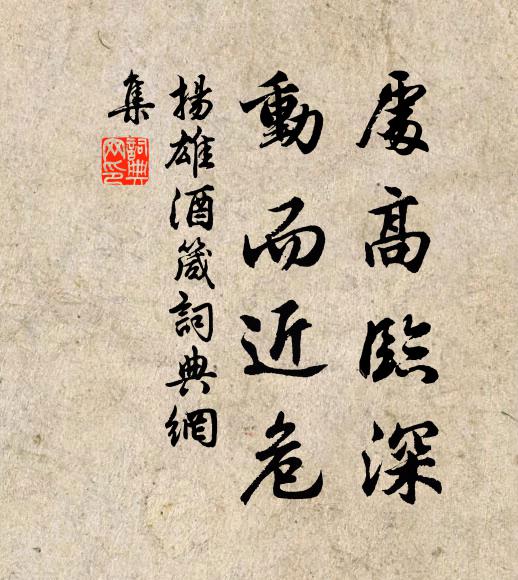 處高臨深
動而近危
揚雄酒箴詞典網
集
詞典
网印